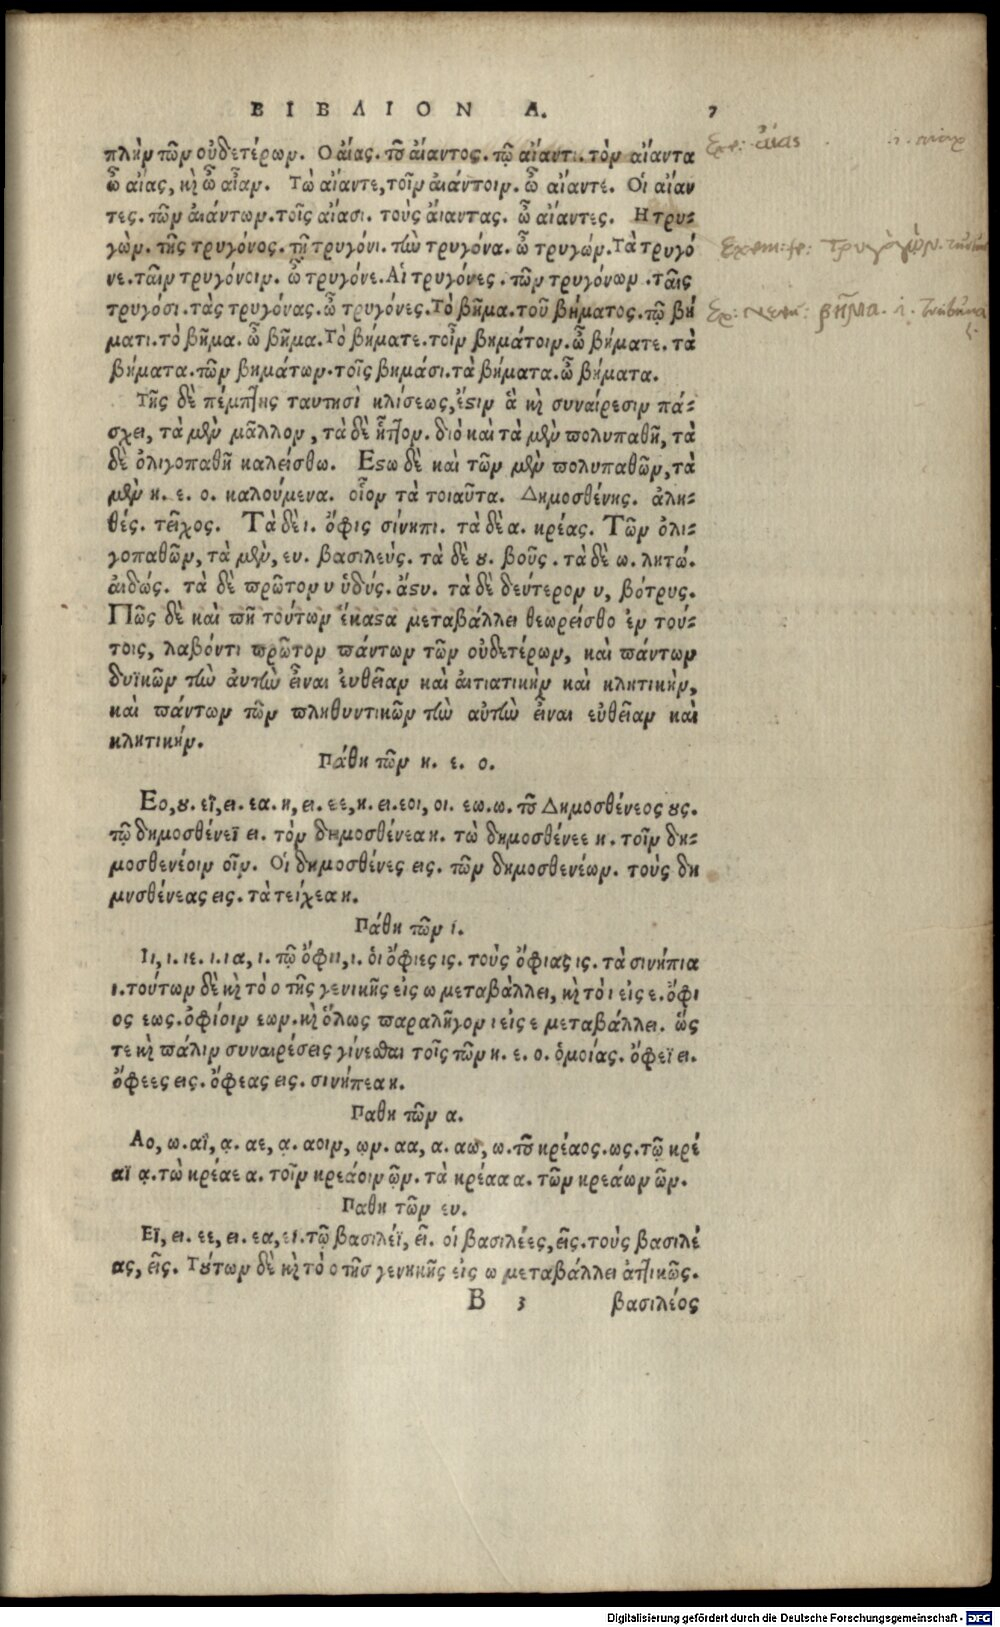 ΒΙΒΛΙΟΝ Α. 7
πλὴν τῶν οὐδετέρων. Ο αἴας. τοῦ αἴαντος. τῷ αἴαντι. τὸν αἴαντα
ὦ αἴας, καὶ ὦ αἶαν. Τὼ αἴαντε, τοῖν αἰάντοιν. ὦ αἴαντε. Οἱ αἴαν
τες. τῶν αἰάντων. τοῖς αἴασι. τοὺς ἄιαντας. ὦ αἴαντες. Η τρυ-
γὼν. τῆς τρυγόνος. τῇ τρυγόνι. τὴν τρυγόνα. ὦ τρυγών. Τὰ τρυγό
νε. ταῖν τρυγόνοιν. ὦ τρυγόνε. Αἱ τρυγόνες. τῶν τρυγόνων. ταῖς
τρυγόσι. τὰς τρυγόνας. ὦ τρυγόνες. Τὸ βῆμα. τοῦ βήματος. τῷ βή
ματι. τὸ βῆμα. ὦ βῆμα. Τὸ βήματε. τοῖν βημάτοιν. ὦ βήματε. τὰ
βήματα. τῶν βημάτων. τοῖς βημάσι. τὰ βήματα. ὦ βήματα.
Τῆς δὲ πέμπτης ταυτησὶ κλίσεως, ἔστιν ἃ καὶ συναίρεσιν πά-
σχει, τὰ μὲν μᾶλλον, τὰ δὲ ἧττον. διὸ καὶ τὰ μὲν πολυπαθῆ, τὰ
δὲ ὀλιγοπαθῆ καλείσθω. Εστω δὲ καὶ τῶν μὲν πολυπαθῶν, τὰ
μὲν η. ε. ο. καλούμενα. οἷον τὰ τοιαῦτα. Δημοσθένης. ἀλη-
θές. τεῖχος. Τὰ δὲ ι. ὄφις σίνηπι. τὰ δὲ α. κρέας. Τῶν ὀλι-
γοπαθῶν, τὰ μὲν, ευ. βασιλεύς. τὰ δὲ ου. βοῦς. τὰ δὲ ω. λητώ.
ἀιδώς. τὰ δὲ πρῶτον υ ἡδύς. ἄστυ. τὰ δὲ δεύτερον υ, βότρυς.
Πῶς δὲ καὶ πῆ τούτων ἕκαστα μεταβάλλει θεωρείσθο ἐν τού-
τοις, λαβόντι πρῶτον πάντων τῶν οὐδετέρων, καὶ πάντων
δυϊκῶν τὴν ἀυτὴν εἶναι ἐυθεῖαν καὶ ἀιτιατικὴν καὶ κλητικὴν,
καὶ πάντων τῶν πληθυντικῶν τὴν αὐτὴν εἶναι εὐθεῖαν καὶ
κλητικήν.
Πάθη τῶν η. ε. ο.
Εο, ου. εϊ, ει. εα. η, ει. εε, η. ει. εοι, οι. εω. ω. τοῦ Δημοσθένεος ους.
τῷ δημοσθένεϊ ει. τὸν δημοσθένεα η. τὼ δημοσθένεε η. τοῖν δη-
μοσθενέοιν οῖν. Οἱ δημοσθένες εις. τῶν δημοσθενέων. τοὺς δη
μυσθένεας εις. τὰ τείχεα η.
Πάθη τῶν ι.
Ιι, ι. ιε. ι. ια, ι. τῷ ὄφιι, ι. ὁι ὄφιες ις. τοὺς ὄφιας ις. τὰ σινήπια
ι. τούτων δὲ καὶ τὸ ο τῆς γενικῆς εἰς ω μεταβάλλει, καὶ τὸ ι εἰς ε. ὄφι
ος εως. ὀφίοιν εων. καὶ ὅλως παραλῆγον ι εἰς ε μεταβάλλει. ὥς
τε καὶ πάλιν συναιρέσεις γίνεσθαι τοῖς τῶν η. ε. ο. ὁμοίας. ὄφεϊ ει.
ὄφεες εις. ὄφεας εις. σινήπεα η.
Παθη τῶν α.
Αο, ω. αϊ, ᾳ. αε, ᾳ. αοιν, ῳν. αα, α. αω, ω. τοῦ κρέαος. ως. τῷ κρέ
αϊ ᾳ. τὼ κρέαε α. τοῖν κρεάοιν ῷν. τὰ κρέαα α. τῶν κρεάων ῶν.
Παθη τῶν ευ.
Εϊ, ει. εε, ει. εα, ει. τῷ βασιλέϊ, εῖ. οἱ βασιλέες, εῖς. τοὺς βασιλέ
ας, εῖς. Τούτων δὲ καὶ τὸ ο τῆσ γενηκῆς εἰς ω μεταβάλλει ἀττικῶς.
Β 3 βασιλέος
Digitalisierung gefördert durch die Deutsche Forschungsgemeinschaft - DFG